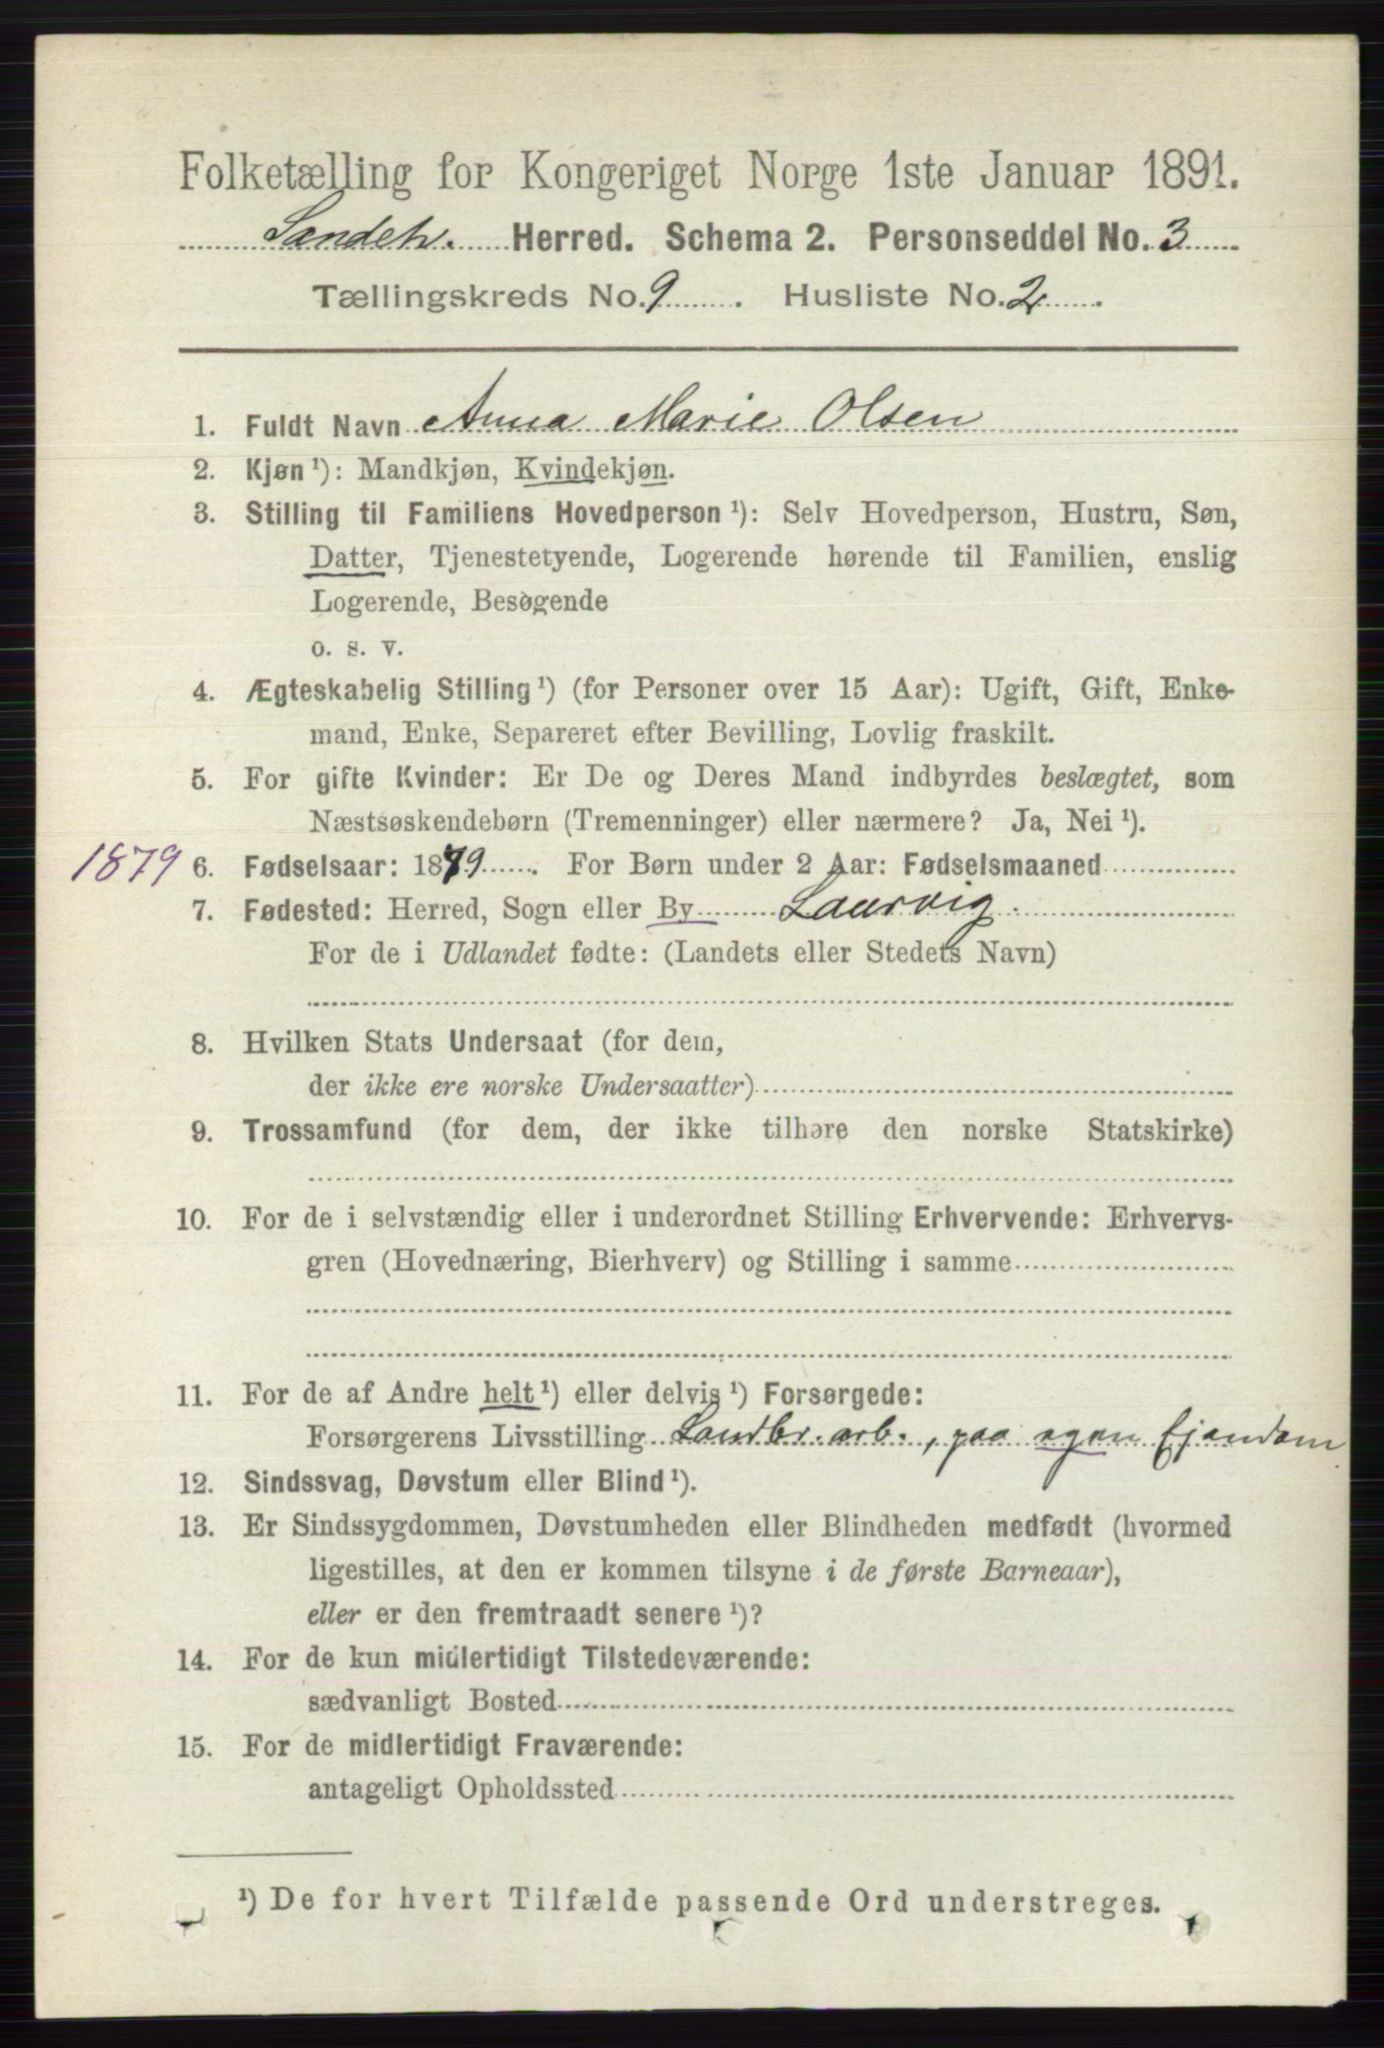 Folketælling for Kongeriget Norge 1ste Januar 1891.
Sandeh. Herred. Schema 2. Personseddel No. 3
Tællingskreds No. 9. Husliste No. 2.
1. Fuldt Navn Anna Marie Olsen
2. Kjøn ¹): Mandkjøn, Kvindekjøn.
3. Stilling til Familiens Hovedperson ¹): Selv Hovedperson, Hustru, Søn,
Datter, Tjenestetyende, Logerende hørende til Familien, enslig
Logerende, Besøgende
o. s. v.
4. Ægteskabelig Stilling ¹) (for Personer over 15 Aar): Ugift, Gift, Enke-
mand, Enke, Separeret efter Bevilling, Lovlig fraskilt.
5. For gifte Kvinder: Er De og Deres Mand indbyrdes beslægtet, som
Næstsøskendebørn (Tremenninger) eller nærmere? Ja, Nei ¹).
1879 6. Fødselsaar: 1879. For Børn under 2 Aar: Fødselsmaaned
7. Fødested: Herred, Sogn eller By Laurvig.
For de i Udlandet fødte: (Landets eller Stedets Navn)
8. Hvilken Stats Undersaat (for dem,
der ikke ere norske Undersaatter)
9. Trossamfund (for dem, der ikke tilhøre den norske Statskirke)
10. For de i selvstændig eller i underordnet Stilling Erhvervende: Erhvervs-
gren (Hovednæring, Bierhverv) og Stilling i samme
11. For de af Andre helt ¹) eller delvis ¹) Forsørgede:
Forsørgerens Livsstilling Landbr. arb., paa egen Ejendom
12. Sindssvag, Døvstum eller Blind ¹).
13. Er Sindssygdommen, Døvstumheden eller Blindheden medfødt (hvormed
ligestilles, at den er kommen tilsyne i de første Barneaar),
eller er den fremtraadt senere ¹)?
14. For de kun midlertidigt Tilstedeværende:
sædvanligt Bosted
15. For de midlertidigt Fraværende:
antageligt Opholdssted
¹) De for hvert Tilfælde passende Ord understreges.